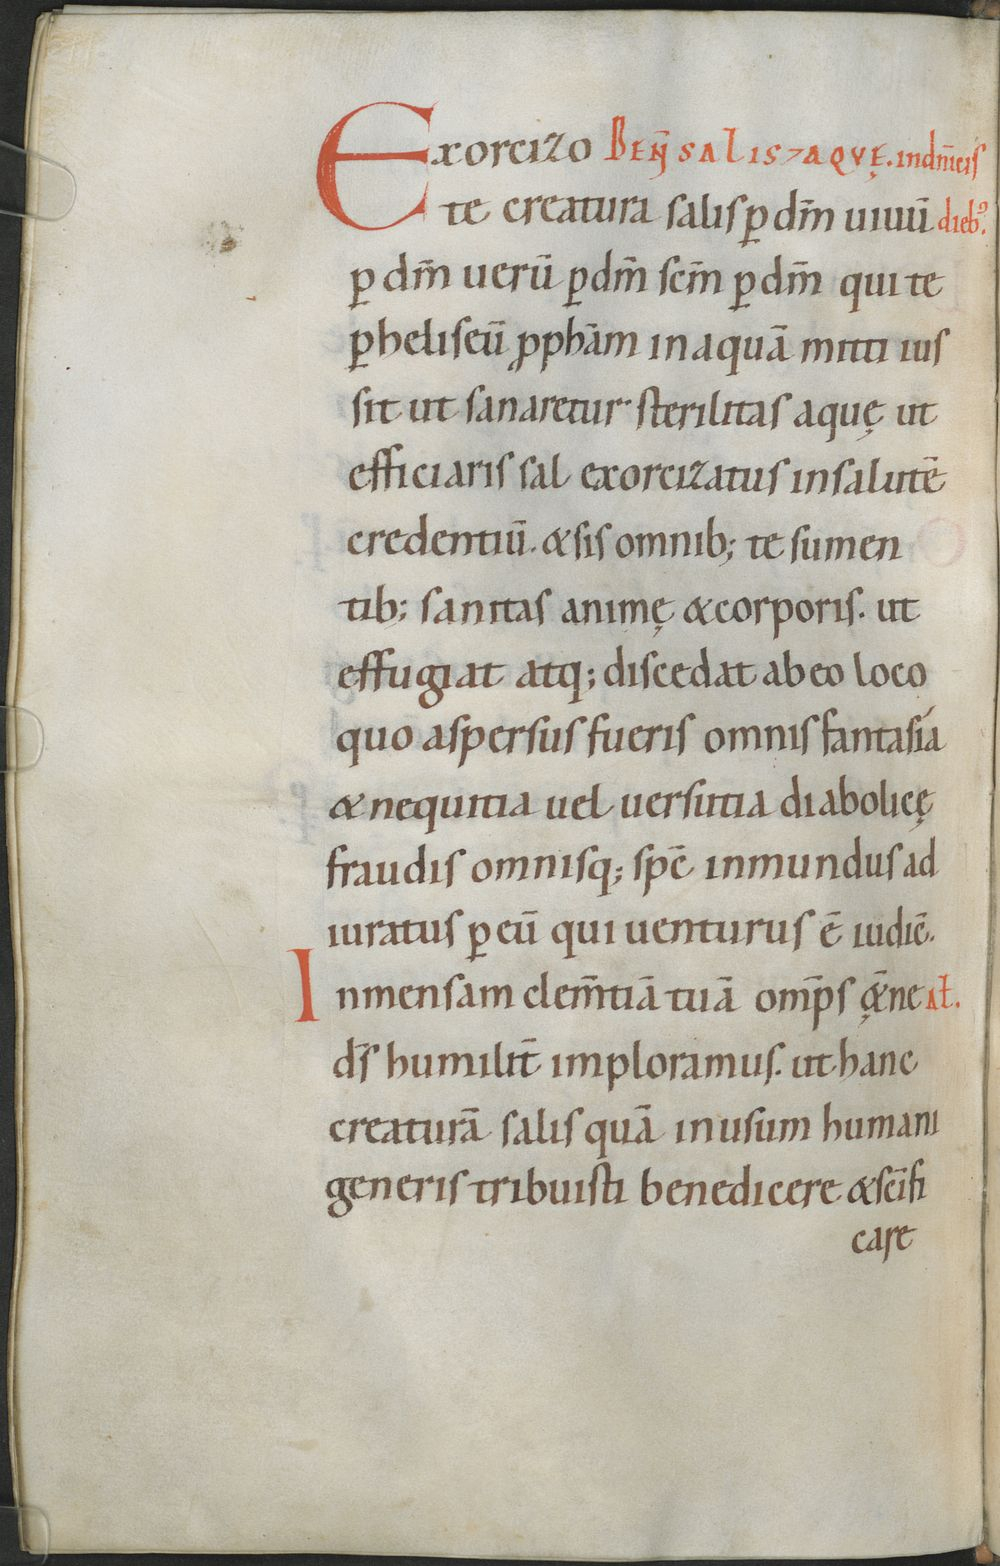 Exorcizo BEÑ SALIS ⁊ AQVĘ. in dn̄icis
te creatura salis ꝑ dm̄ uiuū dieb᷒.
ꝑ dm̄ uerū ꝑ dm̄ scm̄ ꝑ dm̄ qui te
ꝑ heliseū ꝓphām in aquā mitti ius
sit ut sanaretur sterilitas aquę ut
efficiaris sal exorcizatus in salutē
credentiū. & sis omnib; te sumen
tib; sanitas animę & corporis. ut
effugiat atq; discedat ab eo loco
quo aspersus fueris omnis fantasía
& nequitia uel uersutia diabolicę
fraudis omnisq; spc̄ inmundus ad
iuratus ꝑ eū qui uenturus ē iudic̄.
Inmensam clem̄tiā tuā omp̄s ę&̄ne AŁ.
ds̄ humilit̄ imploramus. ut hanc
creaturā salis quā in usum humani
generis tribuisti benedicere & sc̄ifi
care